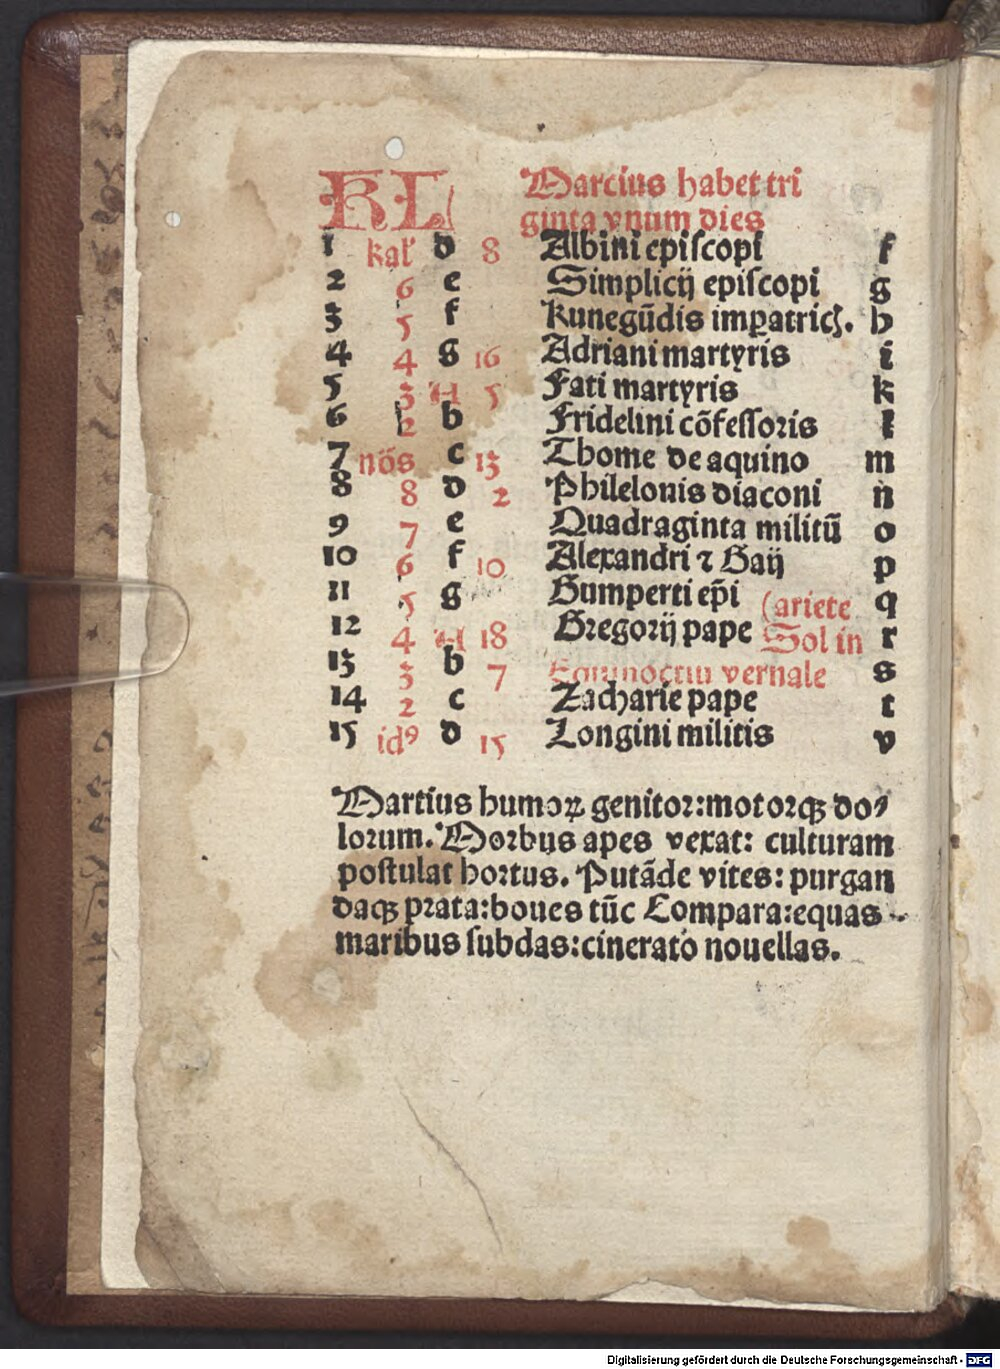 KL Marcius habet tri
ginta vnum dies
1 kal' d 8 Albini episcopi f
2 6 e Simplicij episcopi g
3 5 f Kunegūdis imꝑatric̄. h
4 4 g 16 Adriani martyris i
5 3 A 5 Fati martyris k
6 2 b Fridelini cōfessoris l
7 nōs c 13 Thome de aquino m
8 8 d 2 Philelonis diaconi n
9 7 e Quadraginta militū o
10 6 f 10 Alexandri ⁊ Gaij p
11 5 g Gumperti ep̄i (ariete q
12 4 A 18 Gregorij pape Sol in r
13 3 b 7 Equinoctiū vernale s
14 2 c Zacharie pape t
15 idꝰ d 15 Longini militis v
Martius humoꝝ genitor: motorqꝫ do⸗
lorum. Morbus apes vexat: culturam
postulat hortus. Putāde vites: purgan
daqꝫ prata: boues tūc Compara: equas
maribus subdas: cinerato nouellas.
Digitalisierung gefördert durch die Deutsche Forschungsgemeinschaft - DFG